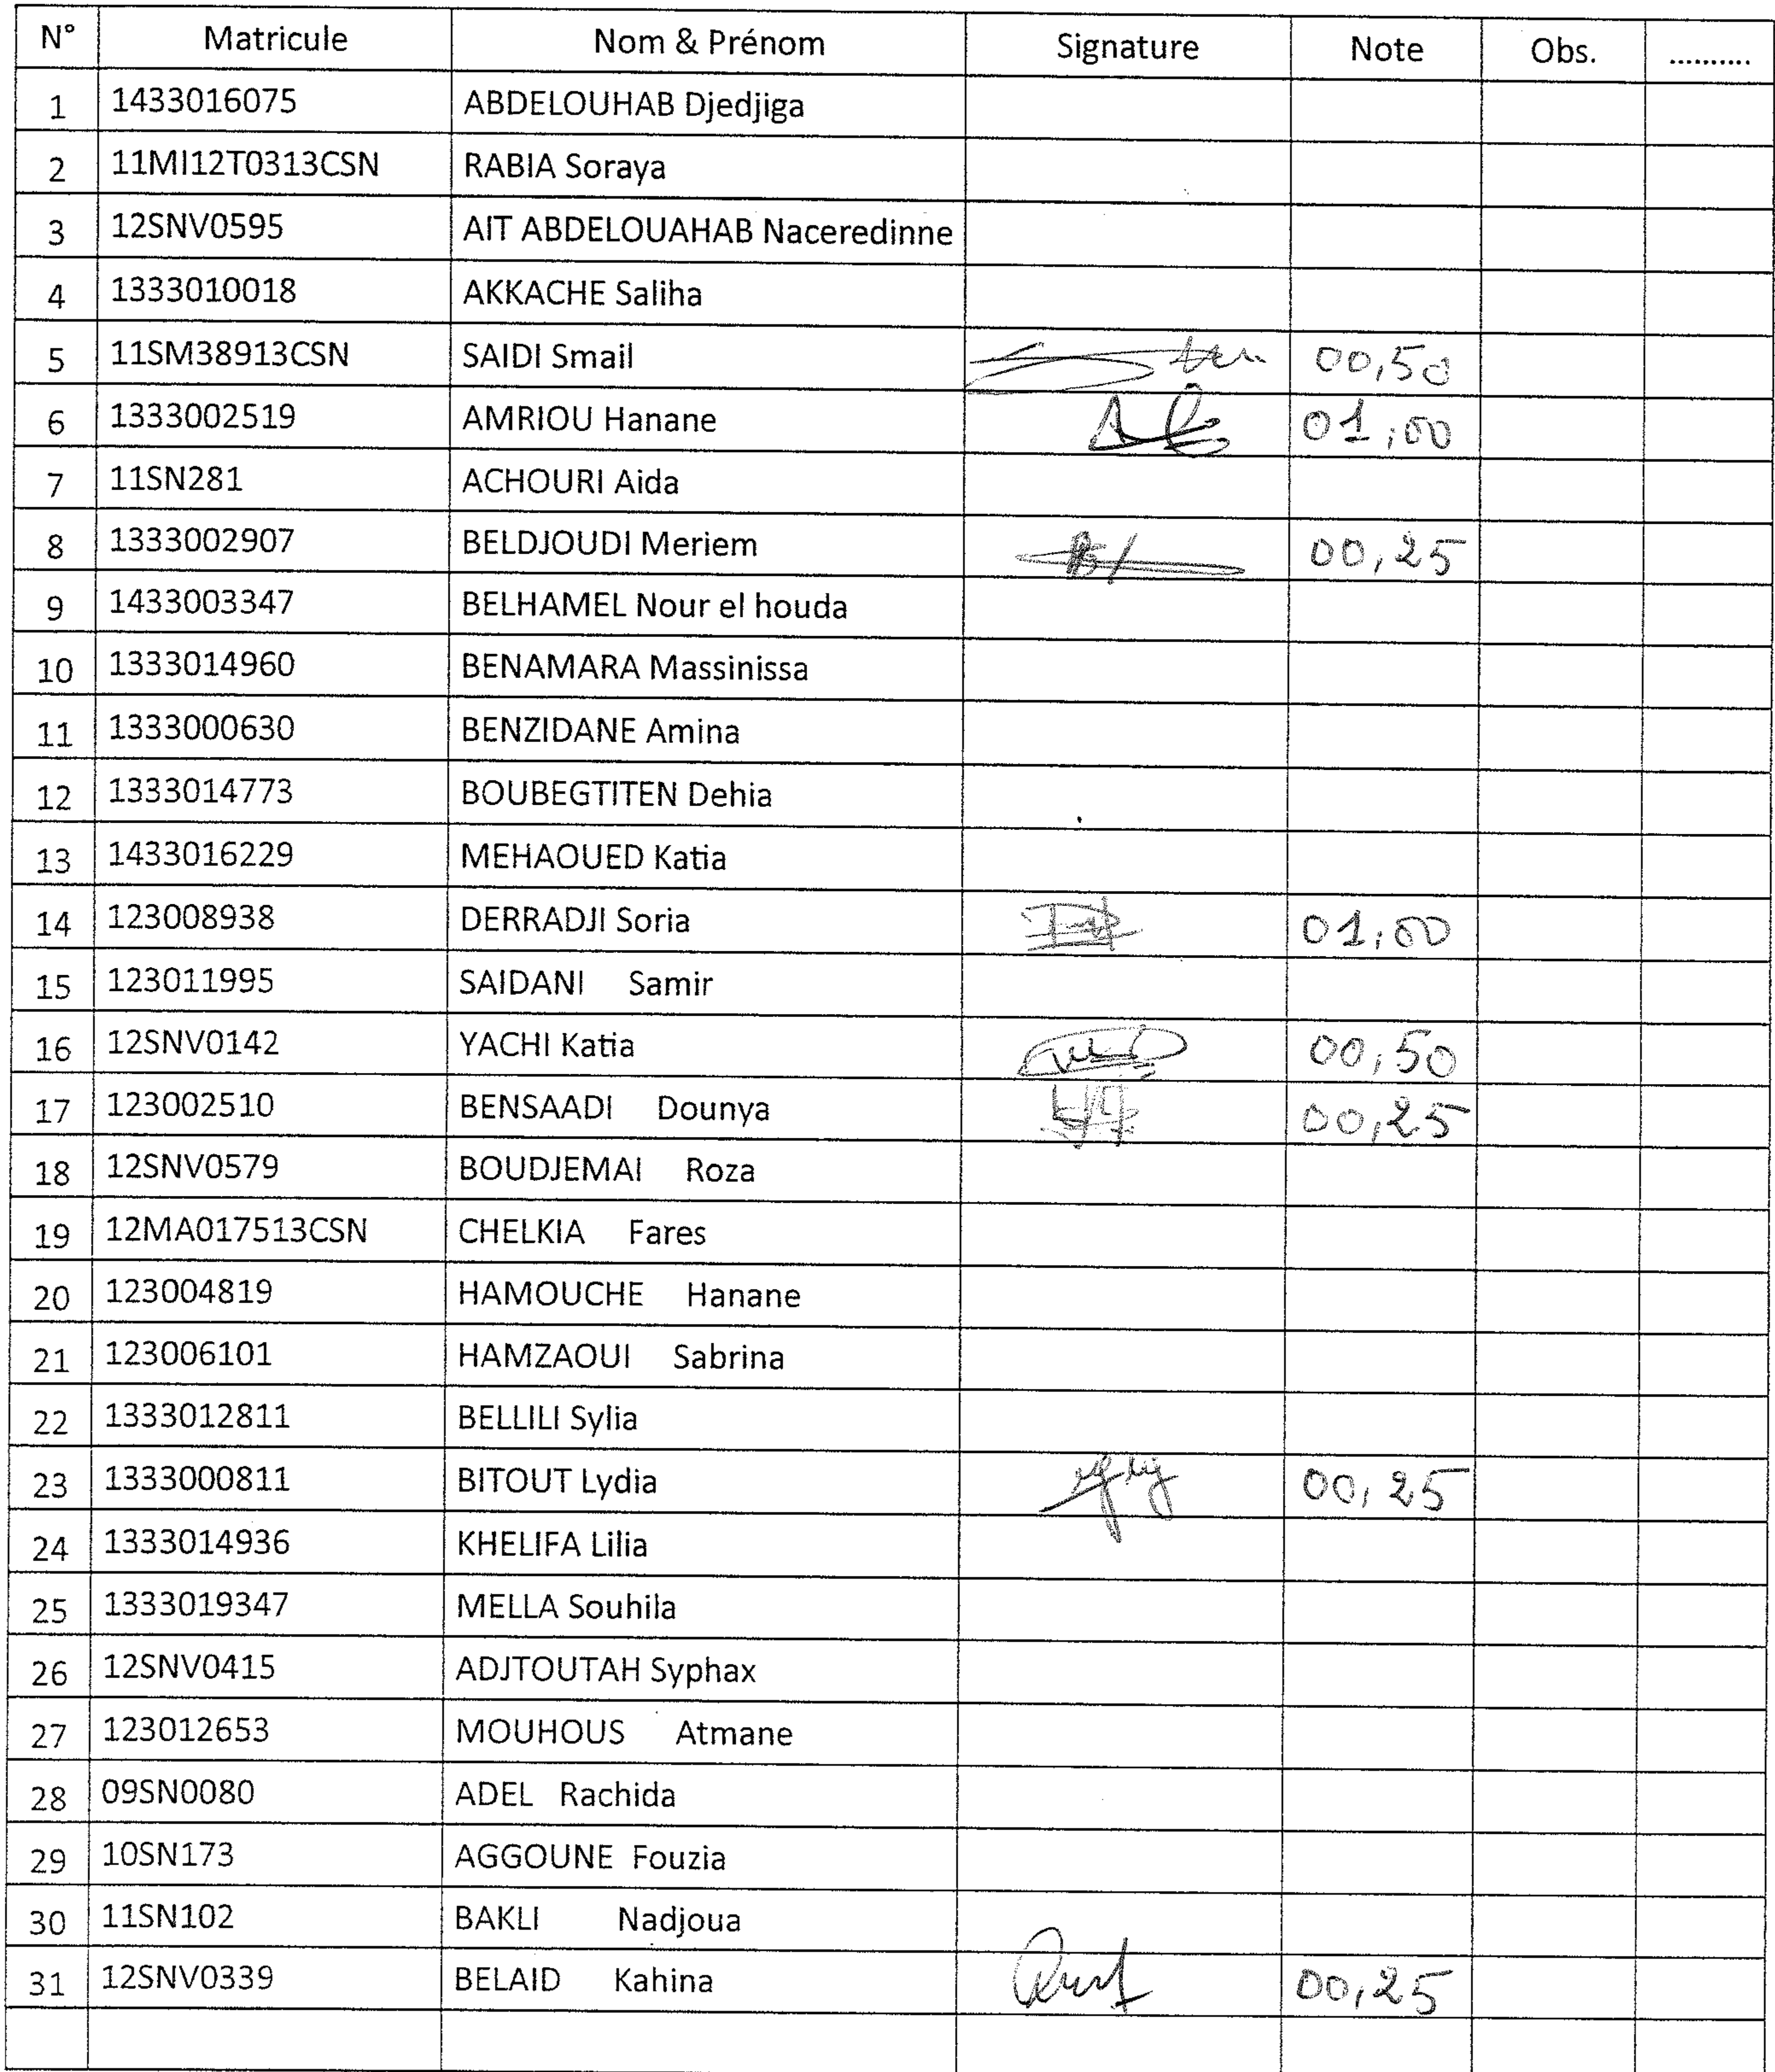 N° Matricule Nom & Prénom Signature Note Obs. ..........
1 1433016075 ABDELOUHAB Djedjiga
2 11MI12T0313CSN RABIA Soraya
3 12SNV0595 AIT ABDELOUAHAB Naceredinne
4 1333010018 AKKACHE Saliha
5 11SM38913CSN SAIDI Smail 00,50
6 1333002519 AMRIOU Hanane 01,00
7 11SN281 ACHOURI Aida
8 1333002907 BELDJOUDI Meriem 00,25
9 1433003347 BELHAMEL Nour el houda
10 1333014960 BENAMARA Massinissa
11 1333000630 BENZIDANE Amina
12 1333014773 BOUBEGTITEN Dehia
13 1433016229 MEHAOUED Katia
14 123008938 DERRADJI Soria 01,00
15 123011995 SAIDANI Samir
16 12SNV0142 YACHI Katia 00,50
17 123002510 BENSAADI Dounya 00,25
18 12SNV0579 BOUDJEMAI Roza
19 12MA017513CSN CHELKIA Fares
20 123004819 HAMOUCHE Hanane
21 123006101 HAMZAOUI Sabrina
22 1333012811 BELLILI Sylia
23 1333000811 BITOUT Lydia 00,25
24 1333014936 KHELIFA Lilia
25 1333019347 MELLA Souhila
26 12SNV0415 ADJTOUTAH Syphax
27 123012653 MOUHOUS Atmane
28 09SN0080 ADEL Rachida
29 10SN173 AGGOUNE Fouzia
30 11SN102 BAKLI Nadjoua
31 12SNV0339 BELAID Kahina 00,25